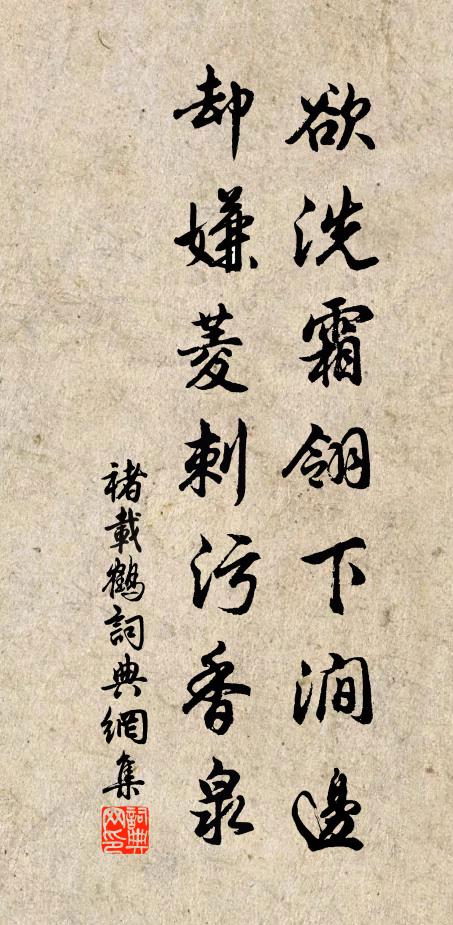 欲洗霜翎下澗邊
却嫌菱刺污香泉
褚載鶴詞典網集
詞典网印